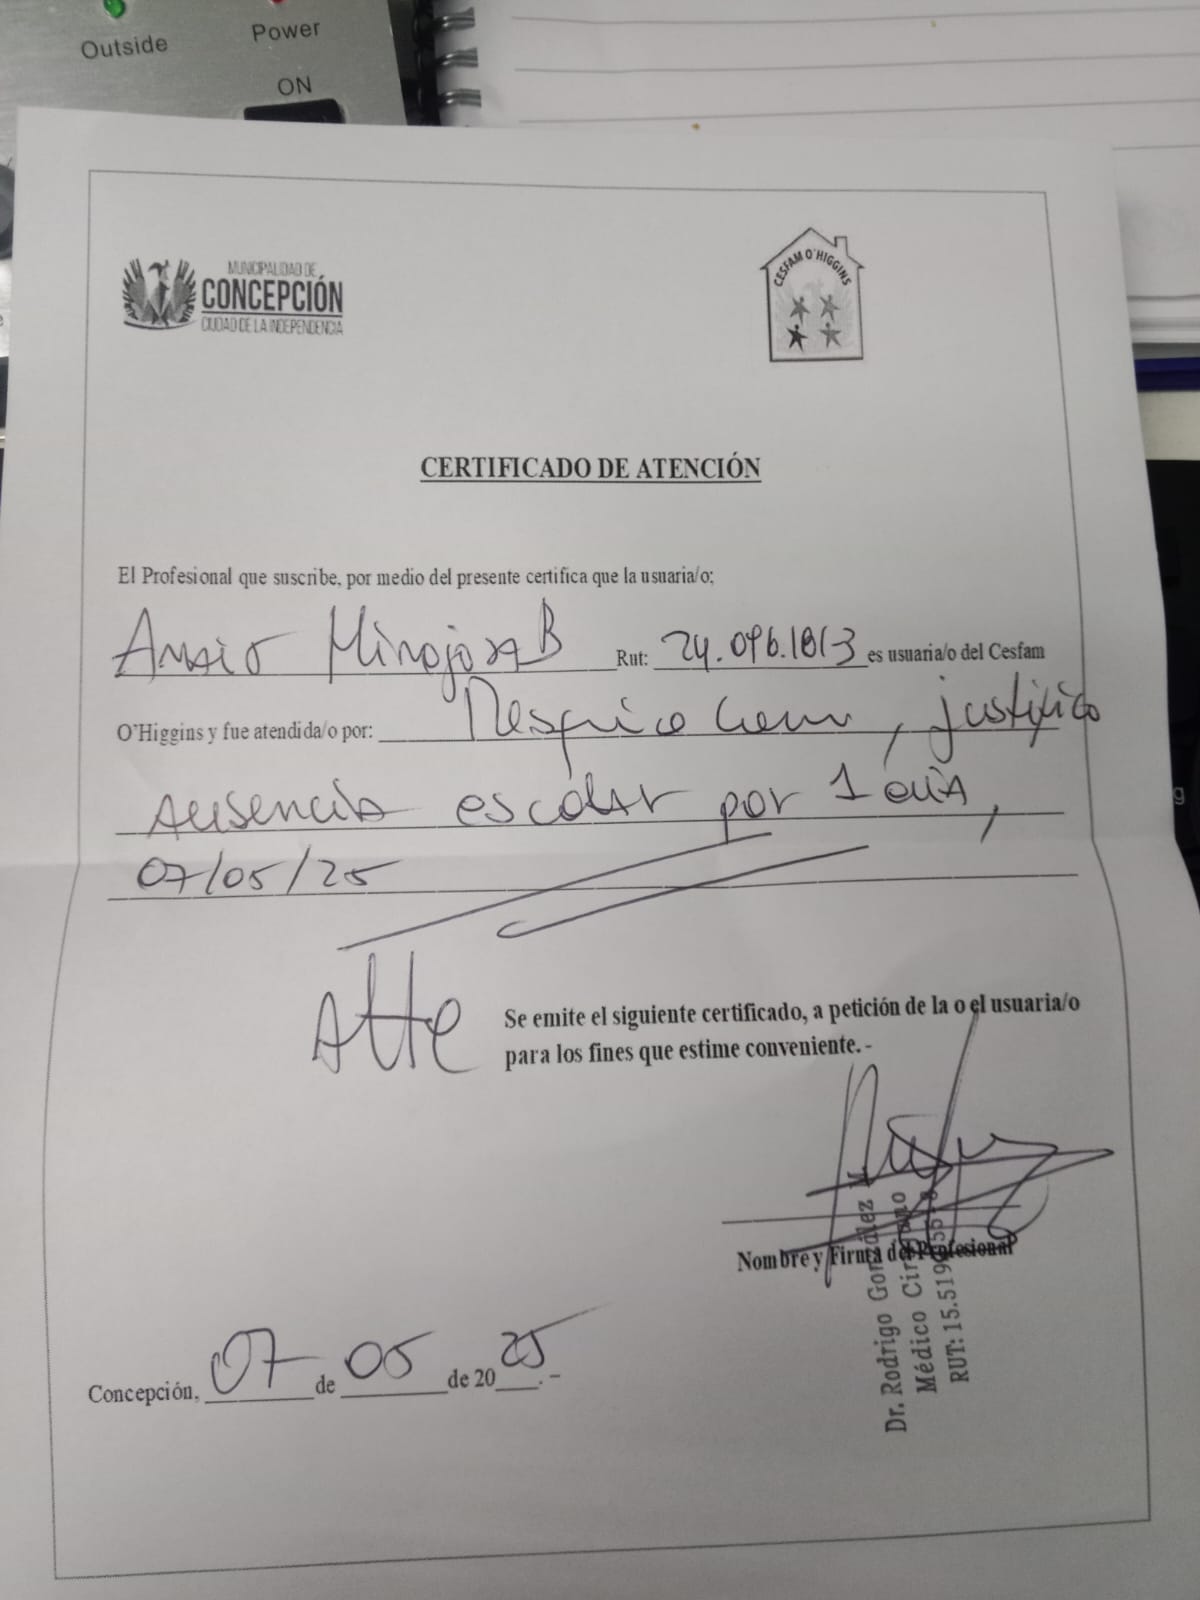 Outside
Power
ON
MUNICIPALIDAD DE
CONCEPCIÓN
CIUDAD DE LA INDEPENDENCIA
CESFAM O'HIGGINS
CERTIFICADO DE ATENCIÓN
El Profesional que suscribe, por medio del presente certifica que la usuaria/o;
Hinojosa B Rut: 24.096.181-3 es usuaria/o del Cesfam
O'Higgins y fue atendida/o por: , justifico
Ausencia escolar por 1 día,
07/05/25
Atte
Se emite el siguiente certificado, a petición de la o el usuaria/o
para los fines que estime conveniente. -
Nombre y Firma del Profesional
Dr. Rodrigo González
Médico Cirujano
RUT: 15.519
Concepción, 07 de 05 de 2025. -